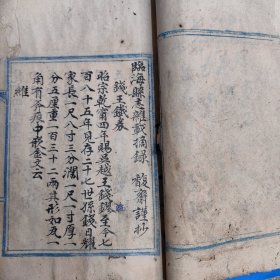 臨海縣志雜載摘錄 馥齋謹抄
錢王鐵券
昭宗乾甯四年賜吳越王錢鏐至今七
百八十五年見存二十七世孫錢日耀
家長一尺八寸三分濶一尺一寸厚一
分五厘重一百三十二兩其形如瓦一
角有斧痕中形金文云
維